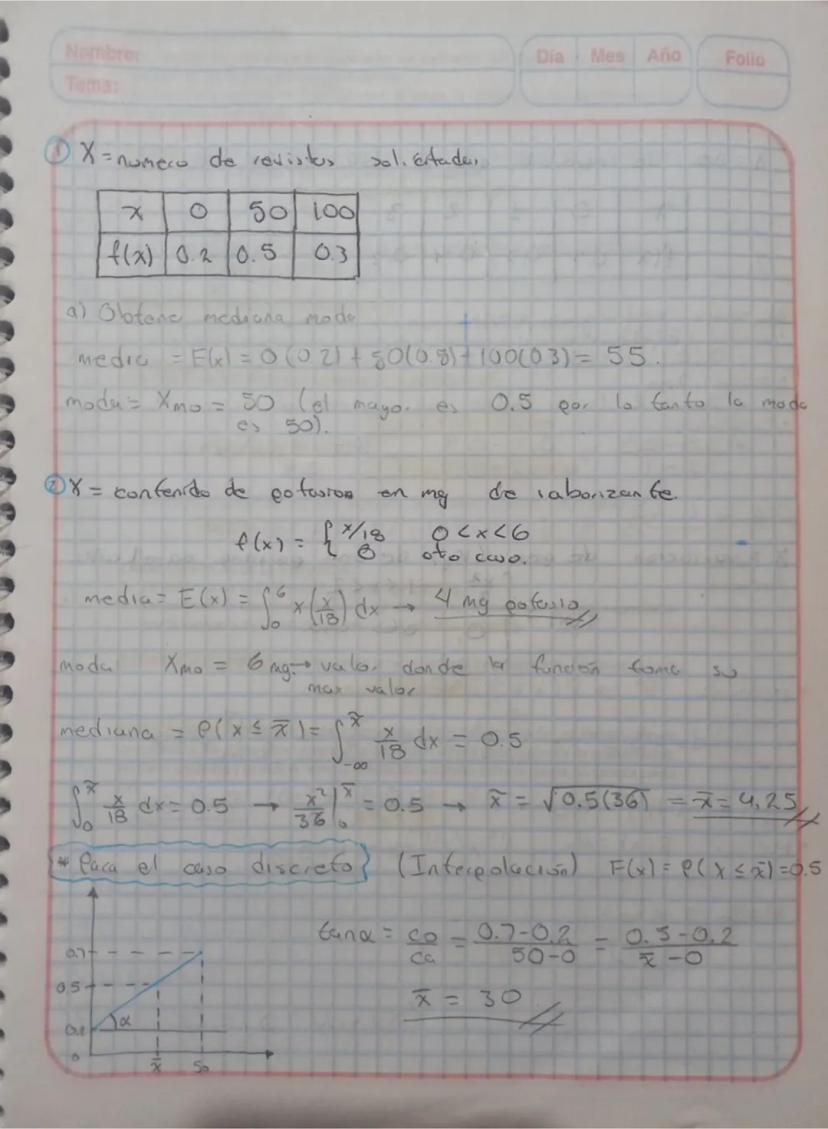 Nombre:
Tema:
Día Mes Año
Folio
① X = numero de revistas solicitadas
x 0 50 100
f(x) 0.2 0.5 0.3
a) Obtener mediana moda
media = E(x) = 0(0.2) + 50(0.5) + 100(0.3) = 55.
moda = Xmo = 50 (el mayor es 0.5 por lo tanto la moda
es 50).
② X = contenido de potasion en mg de saborizante.
f(x) = { x/18 0 < x < 6
0 otro caso.
media = E(x) = ∫₀⁶ x(x/18) dx → 4 mg potasio
moda Xmo = 6 mg → valor donde la función toma su
max valor
mediana = P(x ≤ x̃) = ∫_{-∞}^{x̃} x/18 dx = 0.5
∫₀^{x̃} x/18 dx = 0.5 → x²/36 |₀^{x̃} = 0.5 → x̃ = √0.5(36) = x̃ = 4.25
* Para el caso discreto (Interpolación) F(x) = P(X ≤ x̃) = 0.5
tanα = co/ca = 0.7-0.2/50-0 = 0.5-0.2/x̃-0
0.7
0.5
α
x̃ = 30
0
x̃ 50